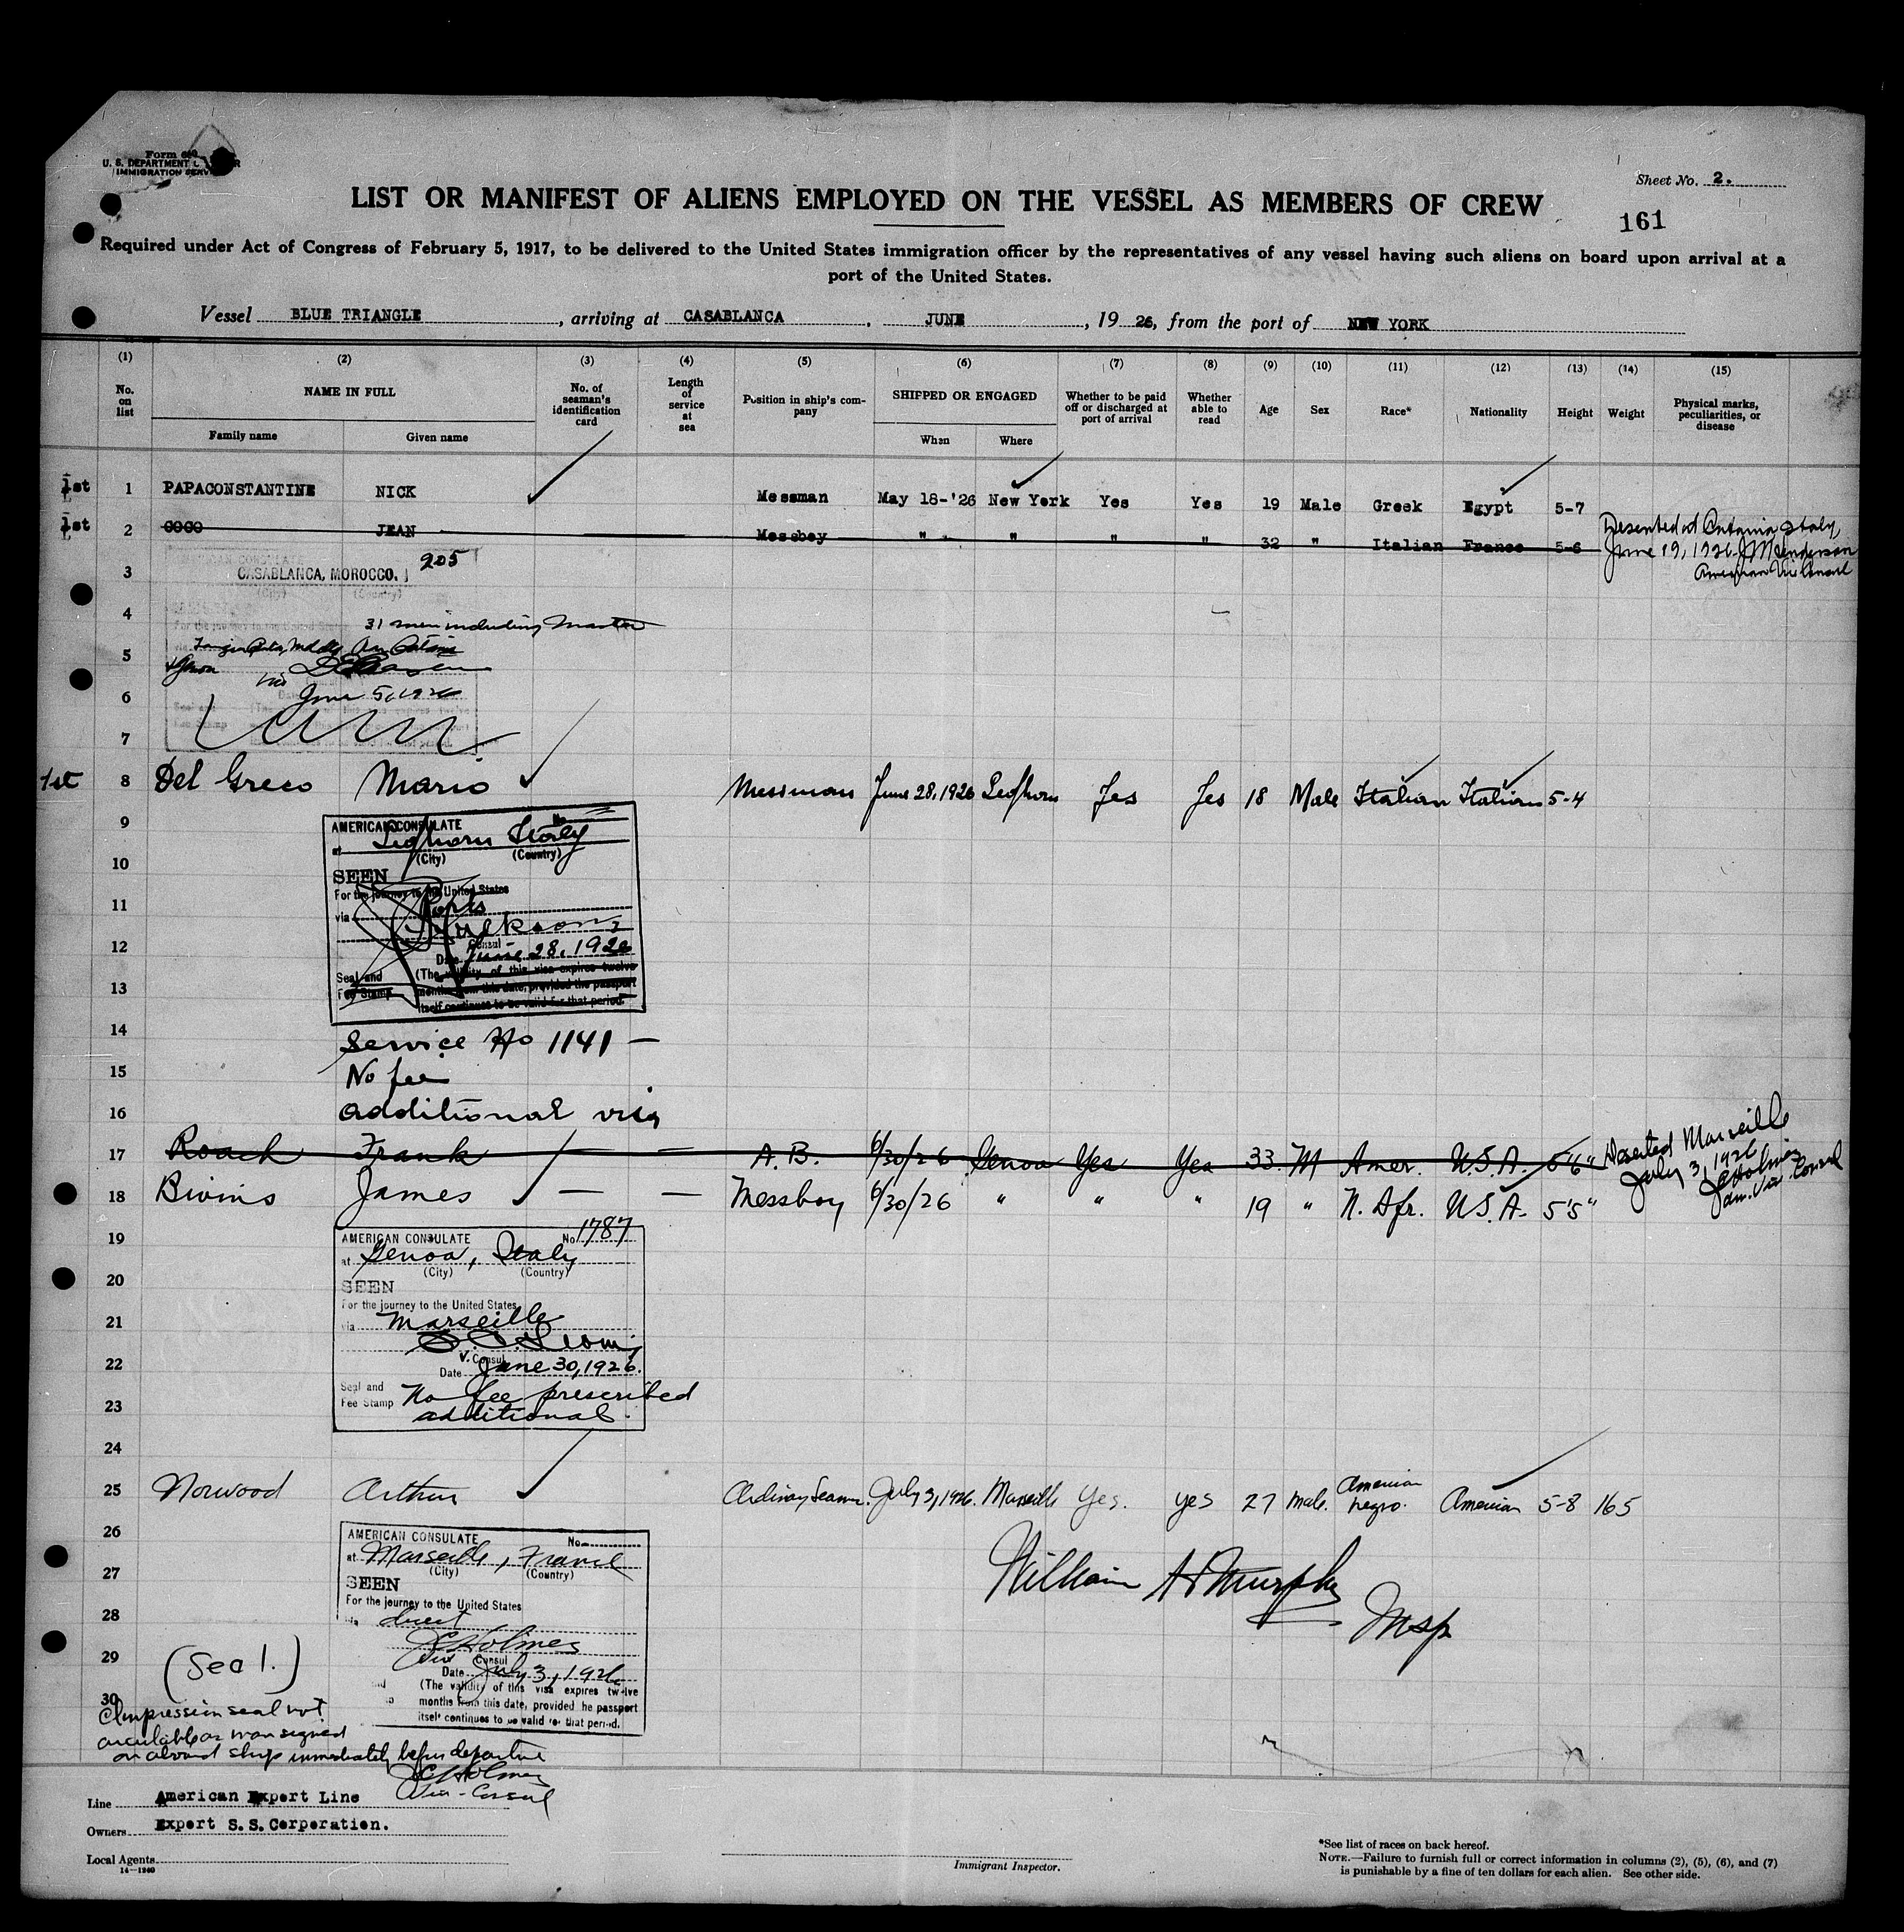 Form 680
U. S. DEPARTMENT
IMMIGRATION SERV
Sheet No. 2.
LIST OR MANIFEST OF ALIENS EMPLOYED ON THE VESSEL AS MEMBERS OF CREW
161
Required under Act of Congress of February 5, 1917, to be delivered to the United States immigration officer by the representatives of any vessel having such aliens on board upon arrival at a
port of the United States.
Vessel BLUE TRIANGLE, arriving at CASABLANCA, JUNE, 19 26, from the port of NEW YORK
(1) (2) (3) (4) (5) (6) (7) (8) (9) (10) (11) (12) (13) (14) (15)
No. on list
NAME IN FULL
Family name Given name
No. of seaman's identification card
Length of service at sea
Position in ship's company
SHIPPED OR ENGAGED
When Where
Whether to be paid off or discharged at port of arrival
Whether able to read
Age Sex Race* Nationality Height Weight
Physical marks, peculiarities, or disease
1st 1 PAPACONSTANTINE NICK Messman May 18-'26 New York Yes Yes 19 Male Greek Egypt 5-7
1st 2 COCO JEAN Messboy " " " " 32 " Italian France 5-6 Deserted at Catania Italy
June 19, 1926
American Vice Consul
3 CASABLANCA, MOROCCO. 205
(City) (Country)
4 31 men including Master
5
6 June 5, 1926
7
1st 8 Del Greco Mario Messman June 28, 1926 Leghorn Yes Yes 18 Male Italian Italian 5-4
9 AMERICAN CONSULATE No.
at Leghorn Italy
(City) (Country)
10 SEEN
For the journey to the United States
11 via Ports
12 Consul
Date June 28, 1926
Seal and Fee Stamp
13 (The validity of this visa expires twelve
months from this date, provided the passport
itself continues to be valid for that period.
14 Service No 1141 —
15 No fee
16 additional visa
17 Roach Frank — — A.B. 6/30/26 Genoa Yes Yes 33 M Amer. U.S.A. 5'6" Deserted Marseille
July 3, 1926
JC Holmes
Am. Vice Consul
18 Bivins James — — Messboy 6/30/26 " " " 19 " N. Afr. U.S.A. 5'5"
19 AMERICAN CONSULATE No 1787
at Genoa, Italy
(City) (Country)
20 SEEN
For the journey to the United States
21 via Marseille
22 V. Consul
Date June 30, 1926.
Seal and Fee Stamp No fee prescribed
23 additional.
24
25 Norwood Arthur Ordinary Seaman. July 3, 1926. Marseille Yes. yes 27 male. American negro. American 5-8 165
26 AMERICAN CONSULATE No.
at Marseille, France
27 (City) (Country)
SEEN
For the journey to the United States
28 via direct
JC Holmes
29 Vice Consul
Date July 3, 1926
(The validity of this visa expires twelve
months from this date, provided he passport
itself continues to be valid for that period.
William H Murphy
Insp
(Seal.)
30
Impression seal not
available as visa signed
on aboard ship immediately before departure
JC Holmes
Vice-Consul
Line American Export Line
Owners Export S.S. Corporation.
Local Agents
14—1240
Immigrant Inspector.
*See list of races on back hereof.
NOTE.—Failure to furnish full or correct information in columns (2), (5), (6), and (7)
is punishable by a fine of ten dollars for each alien. See other side.